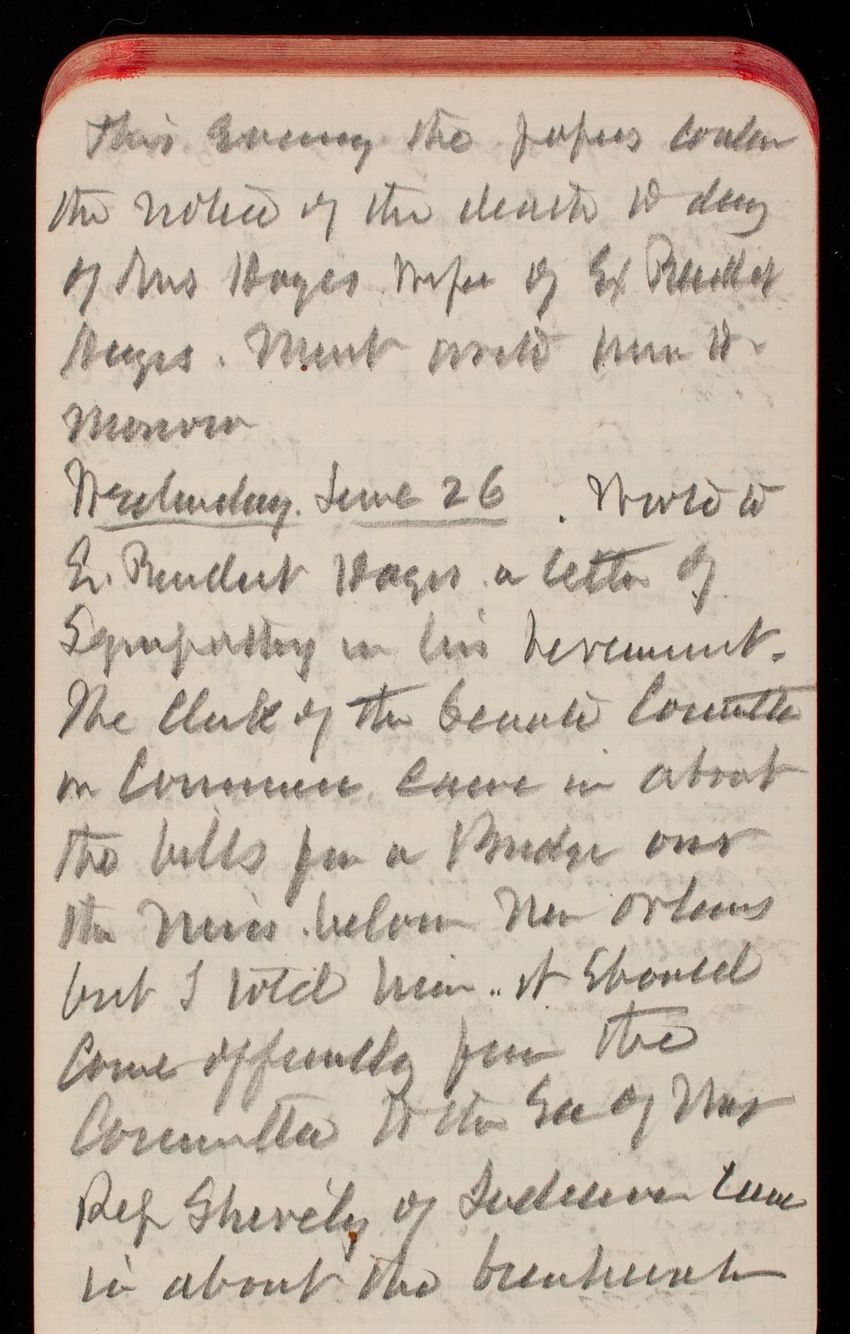 This Evening the papers contain
the notice of the death to day
of Mrs Hayes Wife of Ex President
Hayes. Must write him to
morrow
Wednesday. June 26. Wrote to
Ex. President Hayes a letter of
Sympathy in his berevment.
The Clerk of the Senate Committee
on Commerce came in about
the bills for a Bridge over
the River below New Orleans
but I told him it Should
Come officially from the
Committee to the Sec of War
Rep Shively of Indiana came
in about the